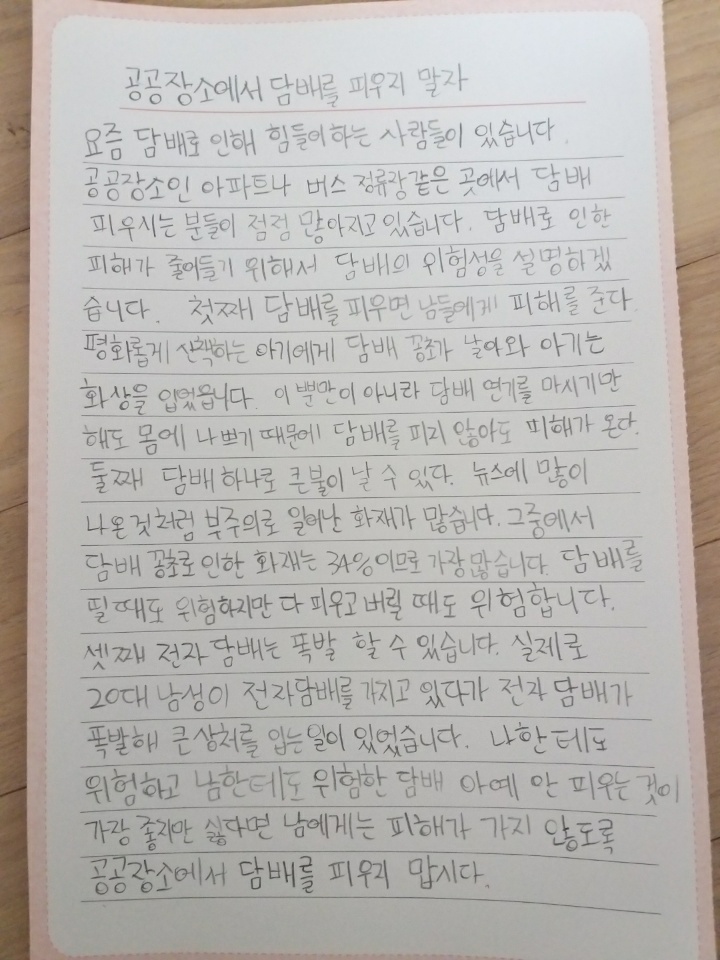 공공장소에서 담배를 피우지 말자
요즘 담배로 인해 힘들어하는 사람들이 있습니다.
공공장소인 아파트나 버스 정류장같은 곳에서 담배
피우시는 분들이 점점 많아지고 있습니다. 담배로 인한
피해가 줄어들기 위해서 담배의 위험성을 설명하겠
습니다. 첫째 담배를 피우면 남들에게 피해를 준다.
평화롭게 산책하는 아기에게 담배 꽁초가 날아와 아기는
화상을 입었읍니다. 이 뿐만이 아니라 담배 연기를 마시기만
해도 몸에 나쁘기 때문에 담배를 피지 않아도 피해가 온다.
둘째 담배 하나로 큰불이 날 수 있다. 뉴스에 많이
나온것처럼 부주의로 일어난 화재가 많습니다. 그중에서
담배 꽁초로 인한 화재는 34%이므로 가장 많습니다. 담배를
필 때도 위험하지만 다 피우고 버릴 때도 위험합니다.
셋째 전자 담배는 폭발 할 수 있습니다. 실제로
20대 남성이 전자담배를 가지고 있다가 전자 담배가
폭발해 큰 상처를 입는일이 있었습니다. 나한테도
위험하고 남한테도 위험한 담배 아예 안 피우는 것이
가장 좋지만 싫다면 남에게는 피해가 가지 않도록
공공장소에서 담배를 피우지 맙시다.